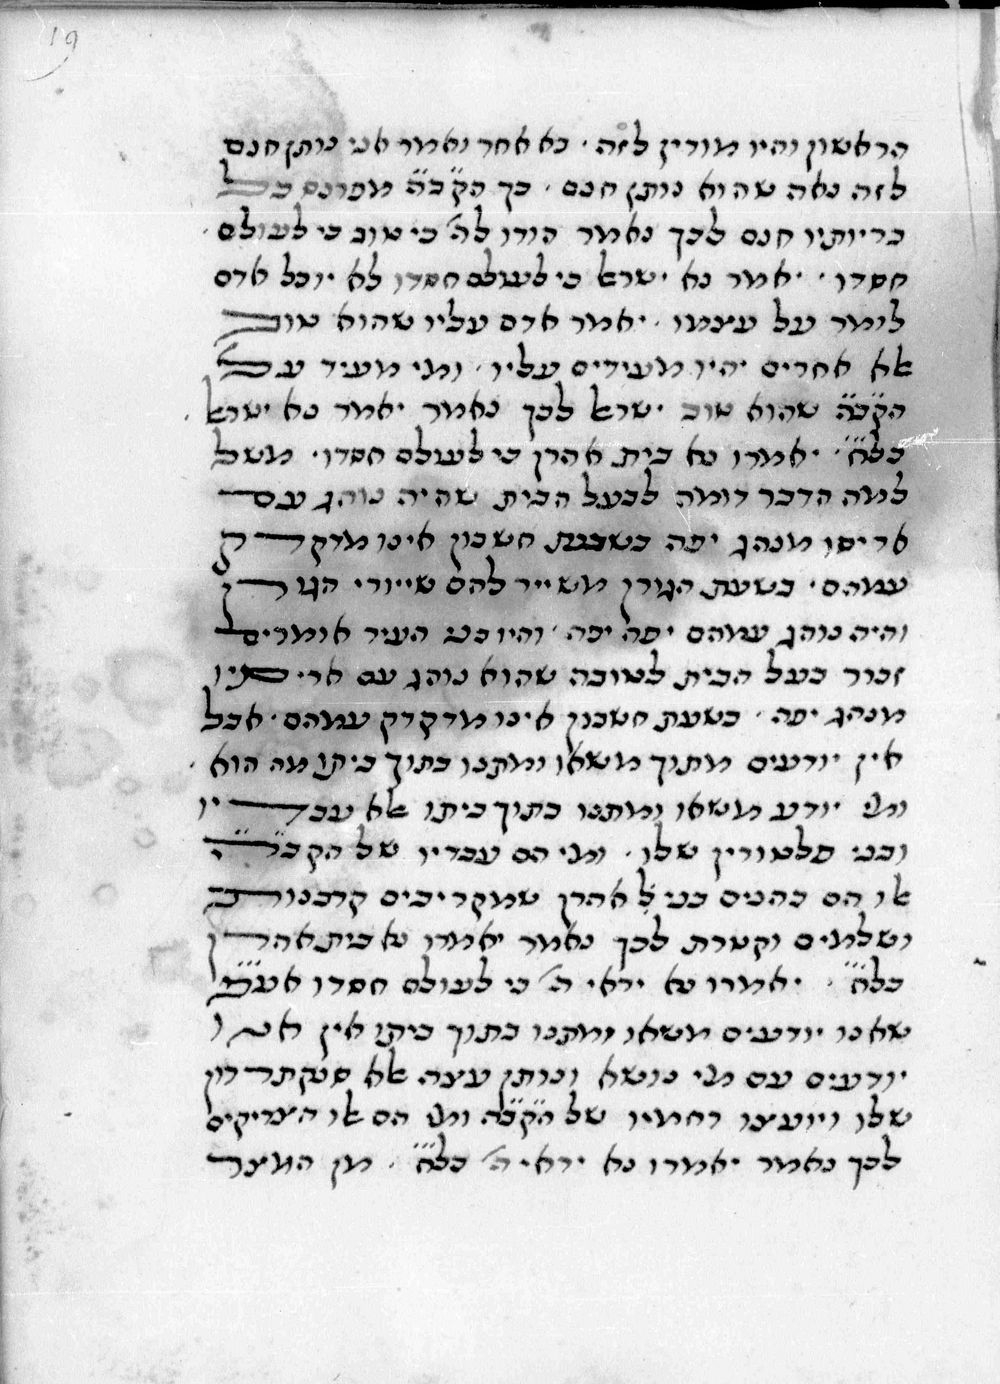 19
הראשון והיו מודין לזה · בא אחד ואמר אני נותן חנם
לזה נאה שהוא נותן חנם · כך הק״בה מפרנס כל
בריותיו חנם לכך נאמר הודו לה׳ כי טוב כי לעולם ·
חסדו · יאמר נא ישראל כי לעולם חסדו לא יוכל אדם
לומר על עצמו · יאמר אדם עליו שהוא טוב
אלא אחרים יהיו מעידים עליו · ומי מעיד על
הק״בה שהוא טוב ישראל לכך נאמר יאמר נא ישראל ·
כלח״ · יאמרו נא בית אהרן כי לעולם חסדו · משל
למה הדבר דומה לבעל הבית שהיה נוהג עם
אריסו מנהג יפה בשעת חשבון אינו מדקדק
עמהם · בשעת הגורן משייר להם שיורי הגורן
והיה נוהג עמהם יפה יפה · והיו בני העיר אומרים
זכור בעל הבית לטובה שהוא נוהג עם אריסיו
מנהג יפה · בשעת חשבון אינו מדקדק עמהם · אבל
אין יודעים מתוך משאו ומתנו בתוך ביתו מה הוא ·
ומי יודע משאו ומתנו בתוך ביתו אלא עבדיו
ובני פלטורין שלו · ומי הם עבדיו של הקב״ה
אלו הם כהנים בני אהרן שמקריבים קרבנות
ושלמים וקטרת לכך נאמר יאמרו נא בית אהרן
כלח״ · יאמרו נא יראי ה׳ כי לעולם חסדו אע״פ
שאנו יודעים משאו ומתנו בתוך ביתו אין אנו
יודעים עם מי נושא ונותן עצה אלא סנקתדרון
שלו ויועצו רחמיו של הק״בה ומי הם אלו הצדיקים
לכך נאמר יאמרו נא יראי ה׳ כלח״ · מן המצר